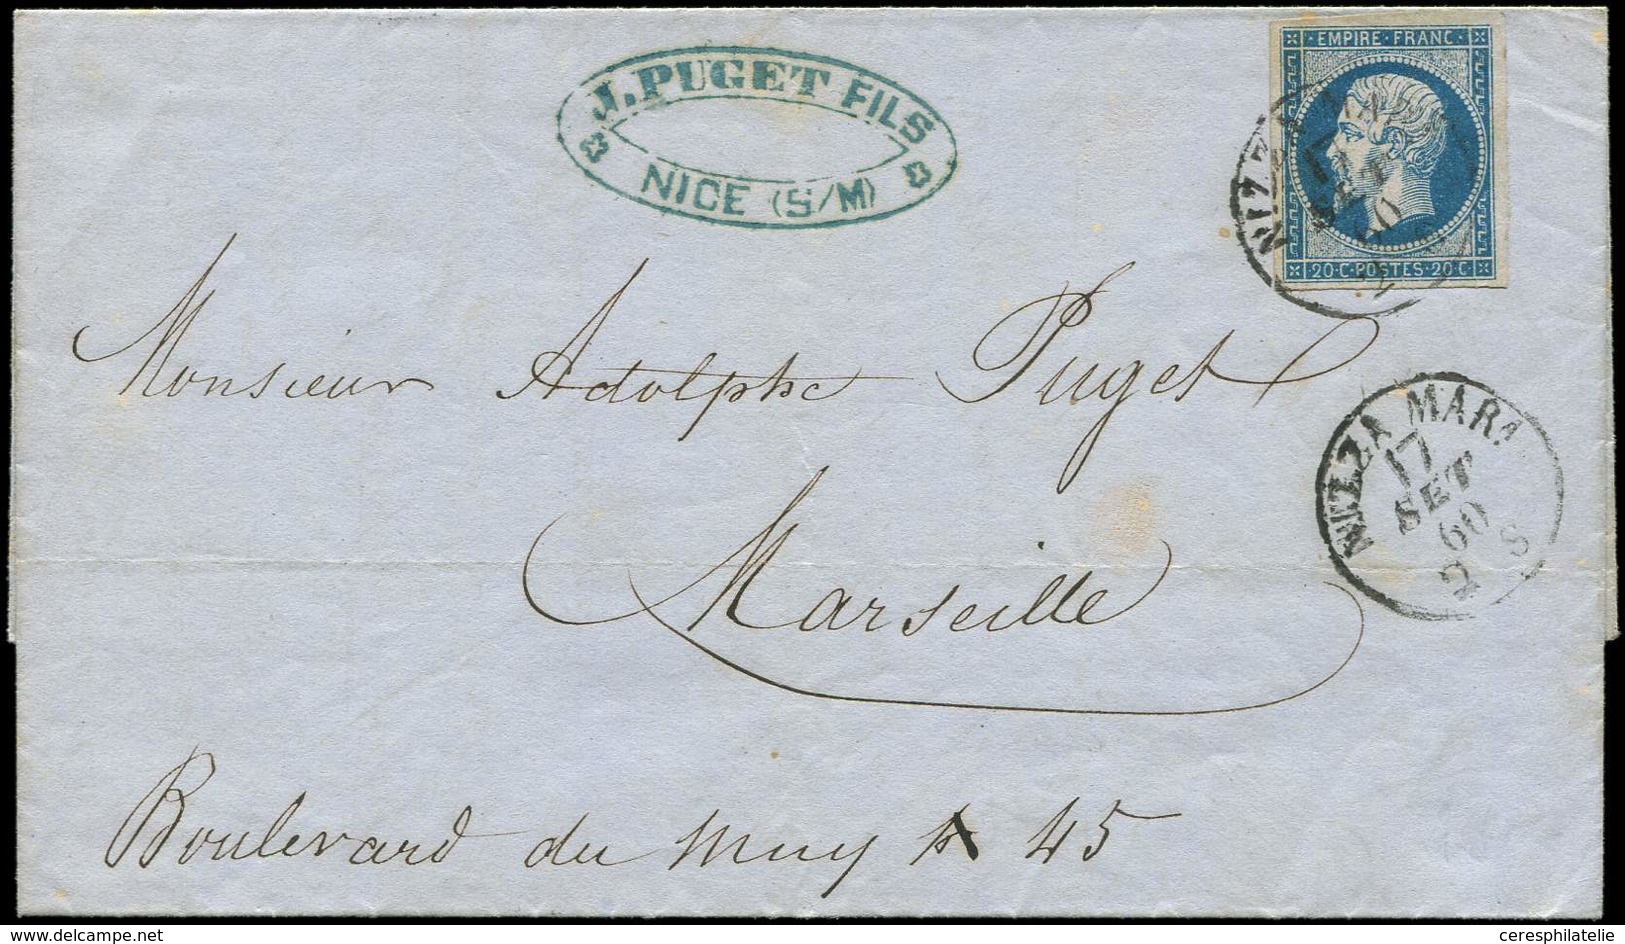 J. PUGET FILS
NICE (S/M)
EMPIRE · FRANC ·
20 · C · POSTES · 20 · C
NIZZA
17
SET
60
Monsieur Adolphe Puget
NIZZA MARA
17
SET
60
2 S
Marseille
Boulevard du Muy 45
delcampe.net
ceresphilatelie